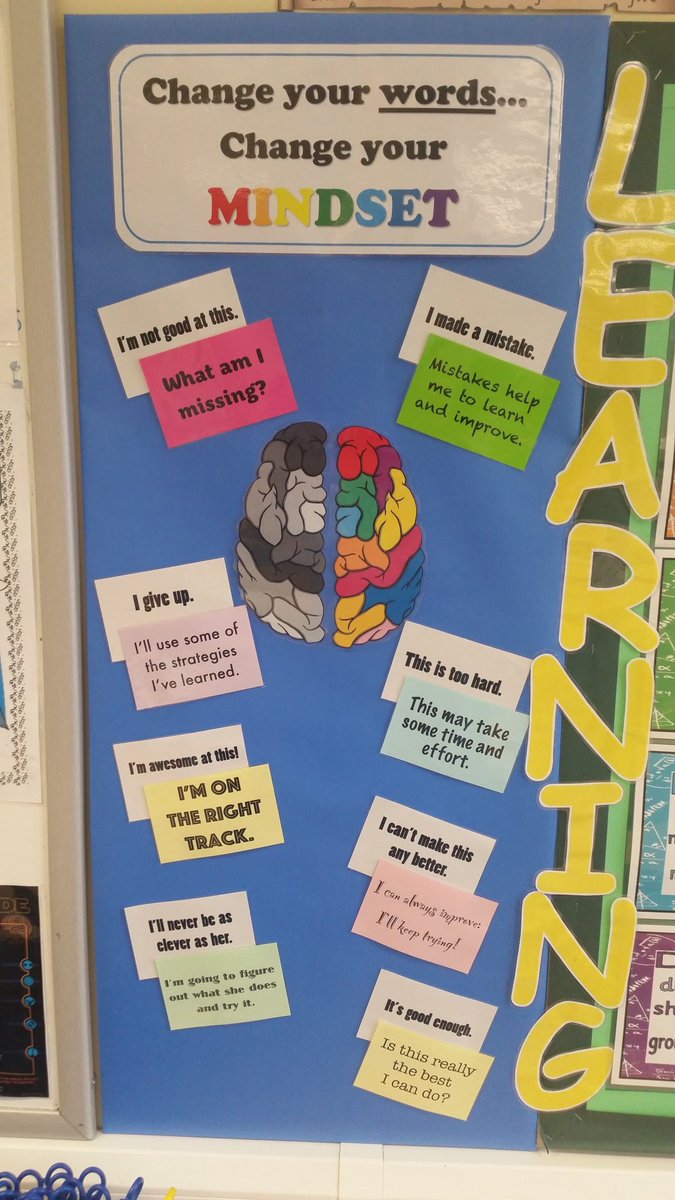 Change your words...
Change your
MINDSET
I'm not good at this.
What am I
missing?
I made a mistake.
Mistakes help
me to learn
and improve.
I give up.
I'll use some of
the strategies
I've learned.
This is too hard.
This may take
some time and
effort.
I'm awesome at this!
I'M ON
THE RIGHT
TRACK.
I can't make this
any better.
I can always improve;
I'll keep trying!
I'll never be as
clever as her.
I'm going to figure
out what she does
and try it.
It's good enough.
Is this really
the best
I can do?
LEARNING